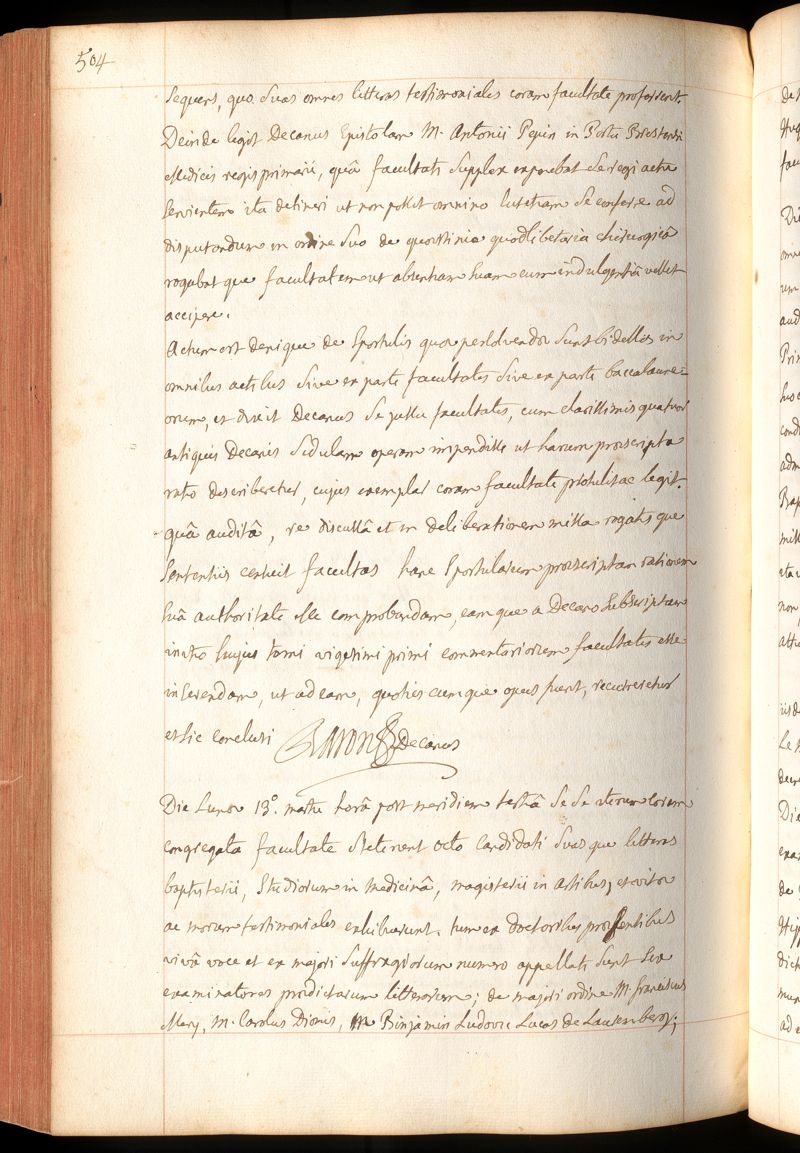 504
sequens, quo suas omnes litteras testimoniales coram facultate proferrent.
Deinde legit Decanus Epistolam M. Antonii Pepin in Portu
Medicis regis primarii, quâ facultati supplex exponebat se regi actu
servientem ita detineri ut non possit omnino lutetiam se conferre ad
disputandum in ordine suo de quaestione quodlibetaria chirurgicâ
rogabatque facultatem ut absentiam suam cum indulgentiâ vellet
accipere.
Actum est denique de sportulis quae persolvendae sunt bidellis in
omnibus actibus sive ex parte facultatis sive ex parte baccalaure=
orum, et dixit Decanus se jussu facultatis, cum clarissimis quatuor
antiquis Decanis sedulam operam impendisse ut harum praescripta
ratio describeretur, cujus exemplar coram facultate protulit ac legit.
quâ auditâ, re discussâ et in deliberationem missa rogatisque
sententiis censuit facultas hanc sportularum praescriptam rationem
suâ authoritate esse comprobandam, eamque a Decano subscriptam
initio hujus tomi vigesimi primi commentariorum facultatis esse
inserendam, ut ad eam, quoties cumque opus fuerit, recurreretur
et sic conclusi Baron Decanus
Die Lunae 13°. martii horâ post meridiem tertiâ se se iterum coram
congregata facultate stiterunt octo candidati suasque litteras
baptisterii, studiorum in medicinâ, magisterii in artibus, et vitae
ac morum testimoniales exhibuerunt. tum ex doctoribus praesentibus
vivâ voce et ex majori suffragiorum numero appellati sunt sex
examinatores praedictarum litterarum; de majori ordine M. franciscus
Mery, M. Carolus Dionis, M Binjamin Ludovic Lucas de Laurembert;